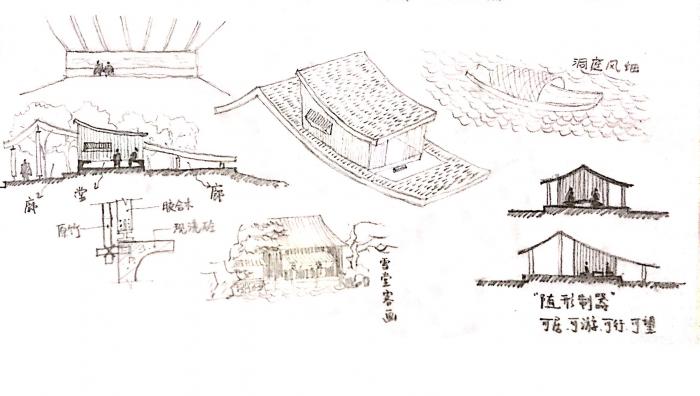 洞庭风细
廊 堂 廊
胶合木
原竹
现浇砼
雪堂客画
"随形制器"
可居.可游.可行.可望